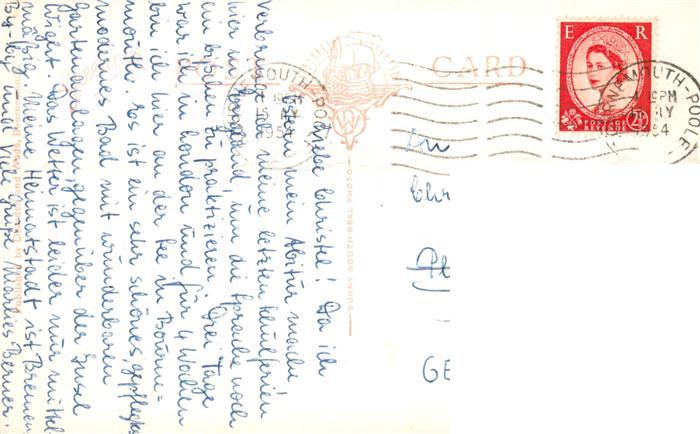 POST CARD
E R
POSTAGE
REVENUE
2½
BOURNEMOUTH-POOLE
PM
1954
SUNNY SOUTH REAL PHOTO
An
Chr
GE
Liebe Christel! Da ich
Ostern mein Abitur mache
verbringe ich meine letzten Schulferien
hier in England, um die Sprache noch
ein bißchen zu praktizieren. Drei Tage
war ich in London und für 4 Wochen
bin ich hier an der See in Bourne=
mouth. Es ist ein sehr schönes, gepflegtes
modernes Bad mit wunderbaren
Gartenanlagen, gegenüber der Insel
Wight. Das Wetter ist leider nur mittel-
mäßig. Meine Heimatstadt ist Bremen.
By-by und viele Grüße Marlies Berner.